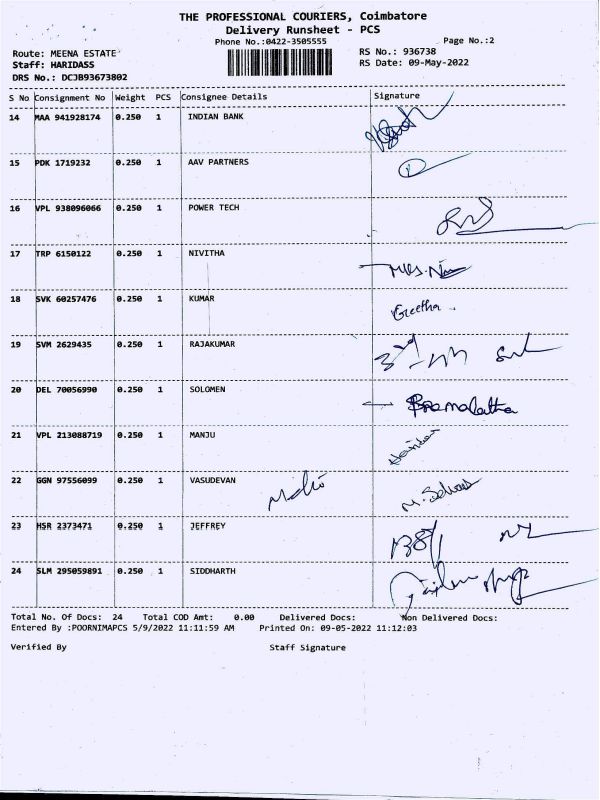 THE PROFESSIONAL COURIERS, Coimbatore
Delivery Runsheet - PCS
Phone No.:0422-3505555
Page No.:2
Route: MEENA ESTATE
RS No.: 936738
Staff: HARIDASS
RS Date: 09-May-2022
DRS No.: DCJB93673802
S No Consignment No Weight PCS Consignee Details Signature
14 MAA 941928174 0.250 1 INDIAN BANK
15 PDK 1719232 0.250 1 AAV PARTNERS
16 VPL 938096066 0.250 1 POWER TECH
17 TRP 6150122 0.250 1 NIVITHA
18 SVK 60257476 0.250 1 KUMAR Geetha
19 SVM 2629435 0.250 1 RAJAKUMAR
20 DEL 70056990 0.250 1 SOLOMEN Premalatha
21 VPL 213088719 0.250 1 MANJU
22 GGN 97556099 0.250 1 VASUDEVAN
23 HSR 2373471 0.250 1 JEFFREY
24 SLM 295059891 0.250 1 SIDDHARTH
Total No. Of Docs: 24 Total COD Amt: 0.00 Delivered Docs: Non Delivered Docs:
Entered By :POORNIMAPCS 5/9/2022 11:11:59 AM Printed On: 09-05-2022 11:12:03
Verified By Staff Signature